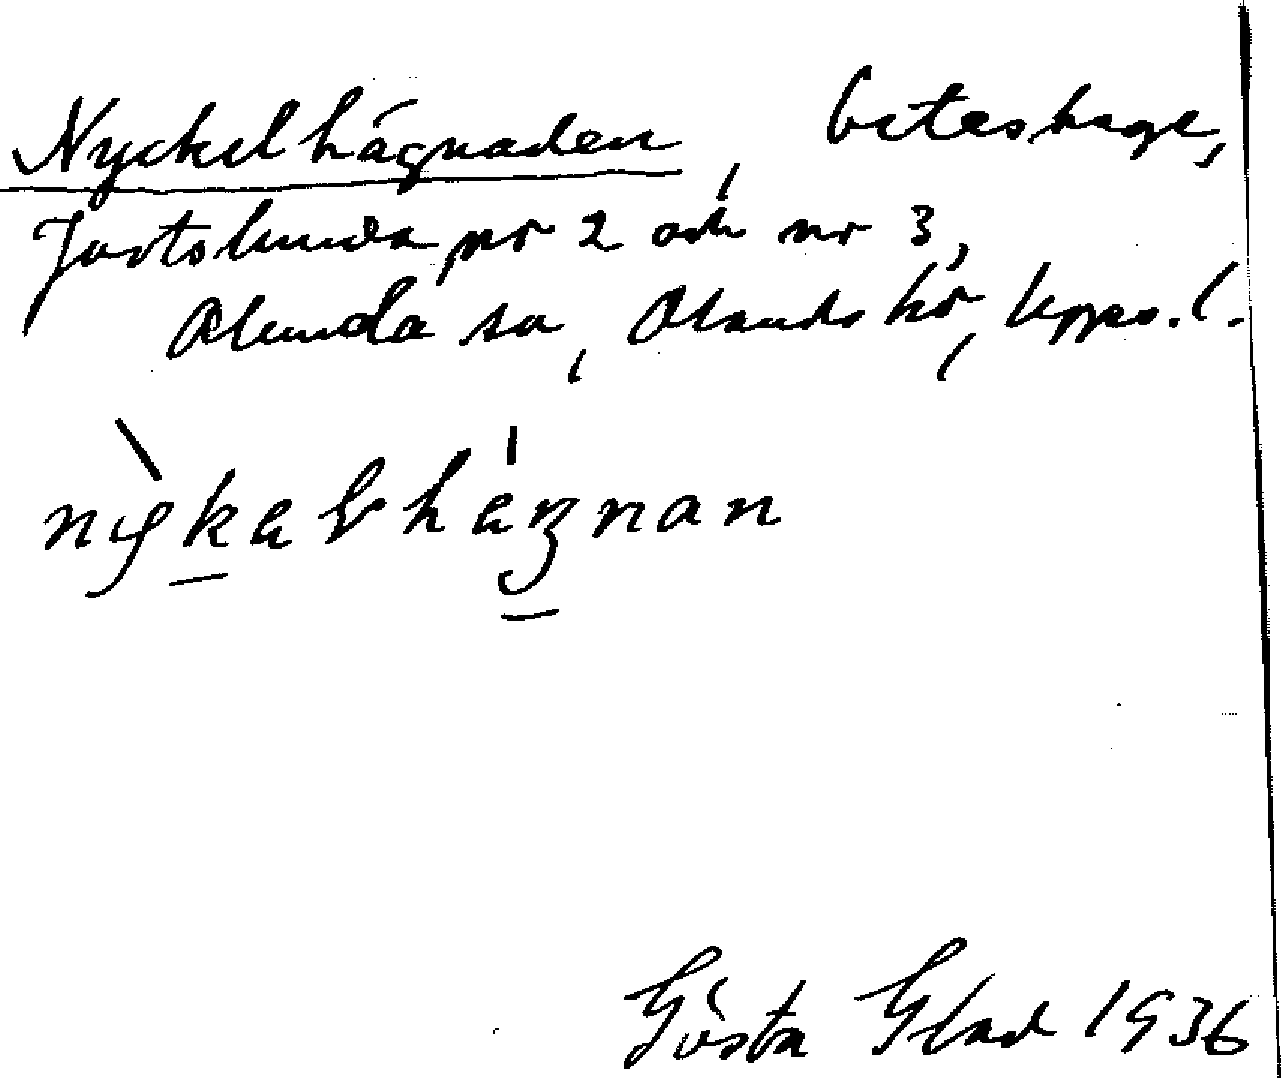 Nyckelhägnaden, beteshage,
Jortslunda nr 2 och nr 3,
Alunda sn, Olands hd, Upps. l.
Gösta Glad 1936